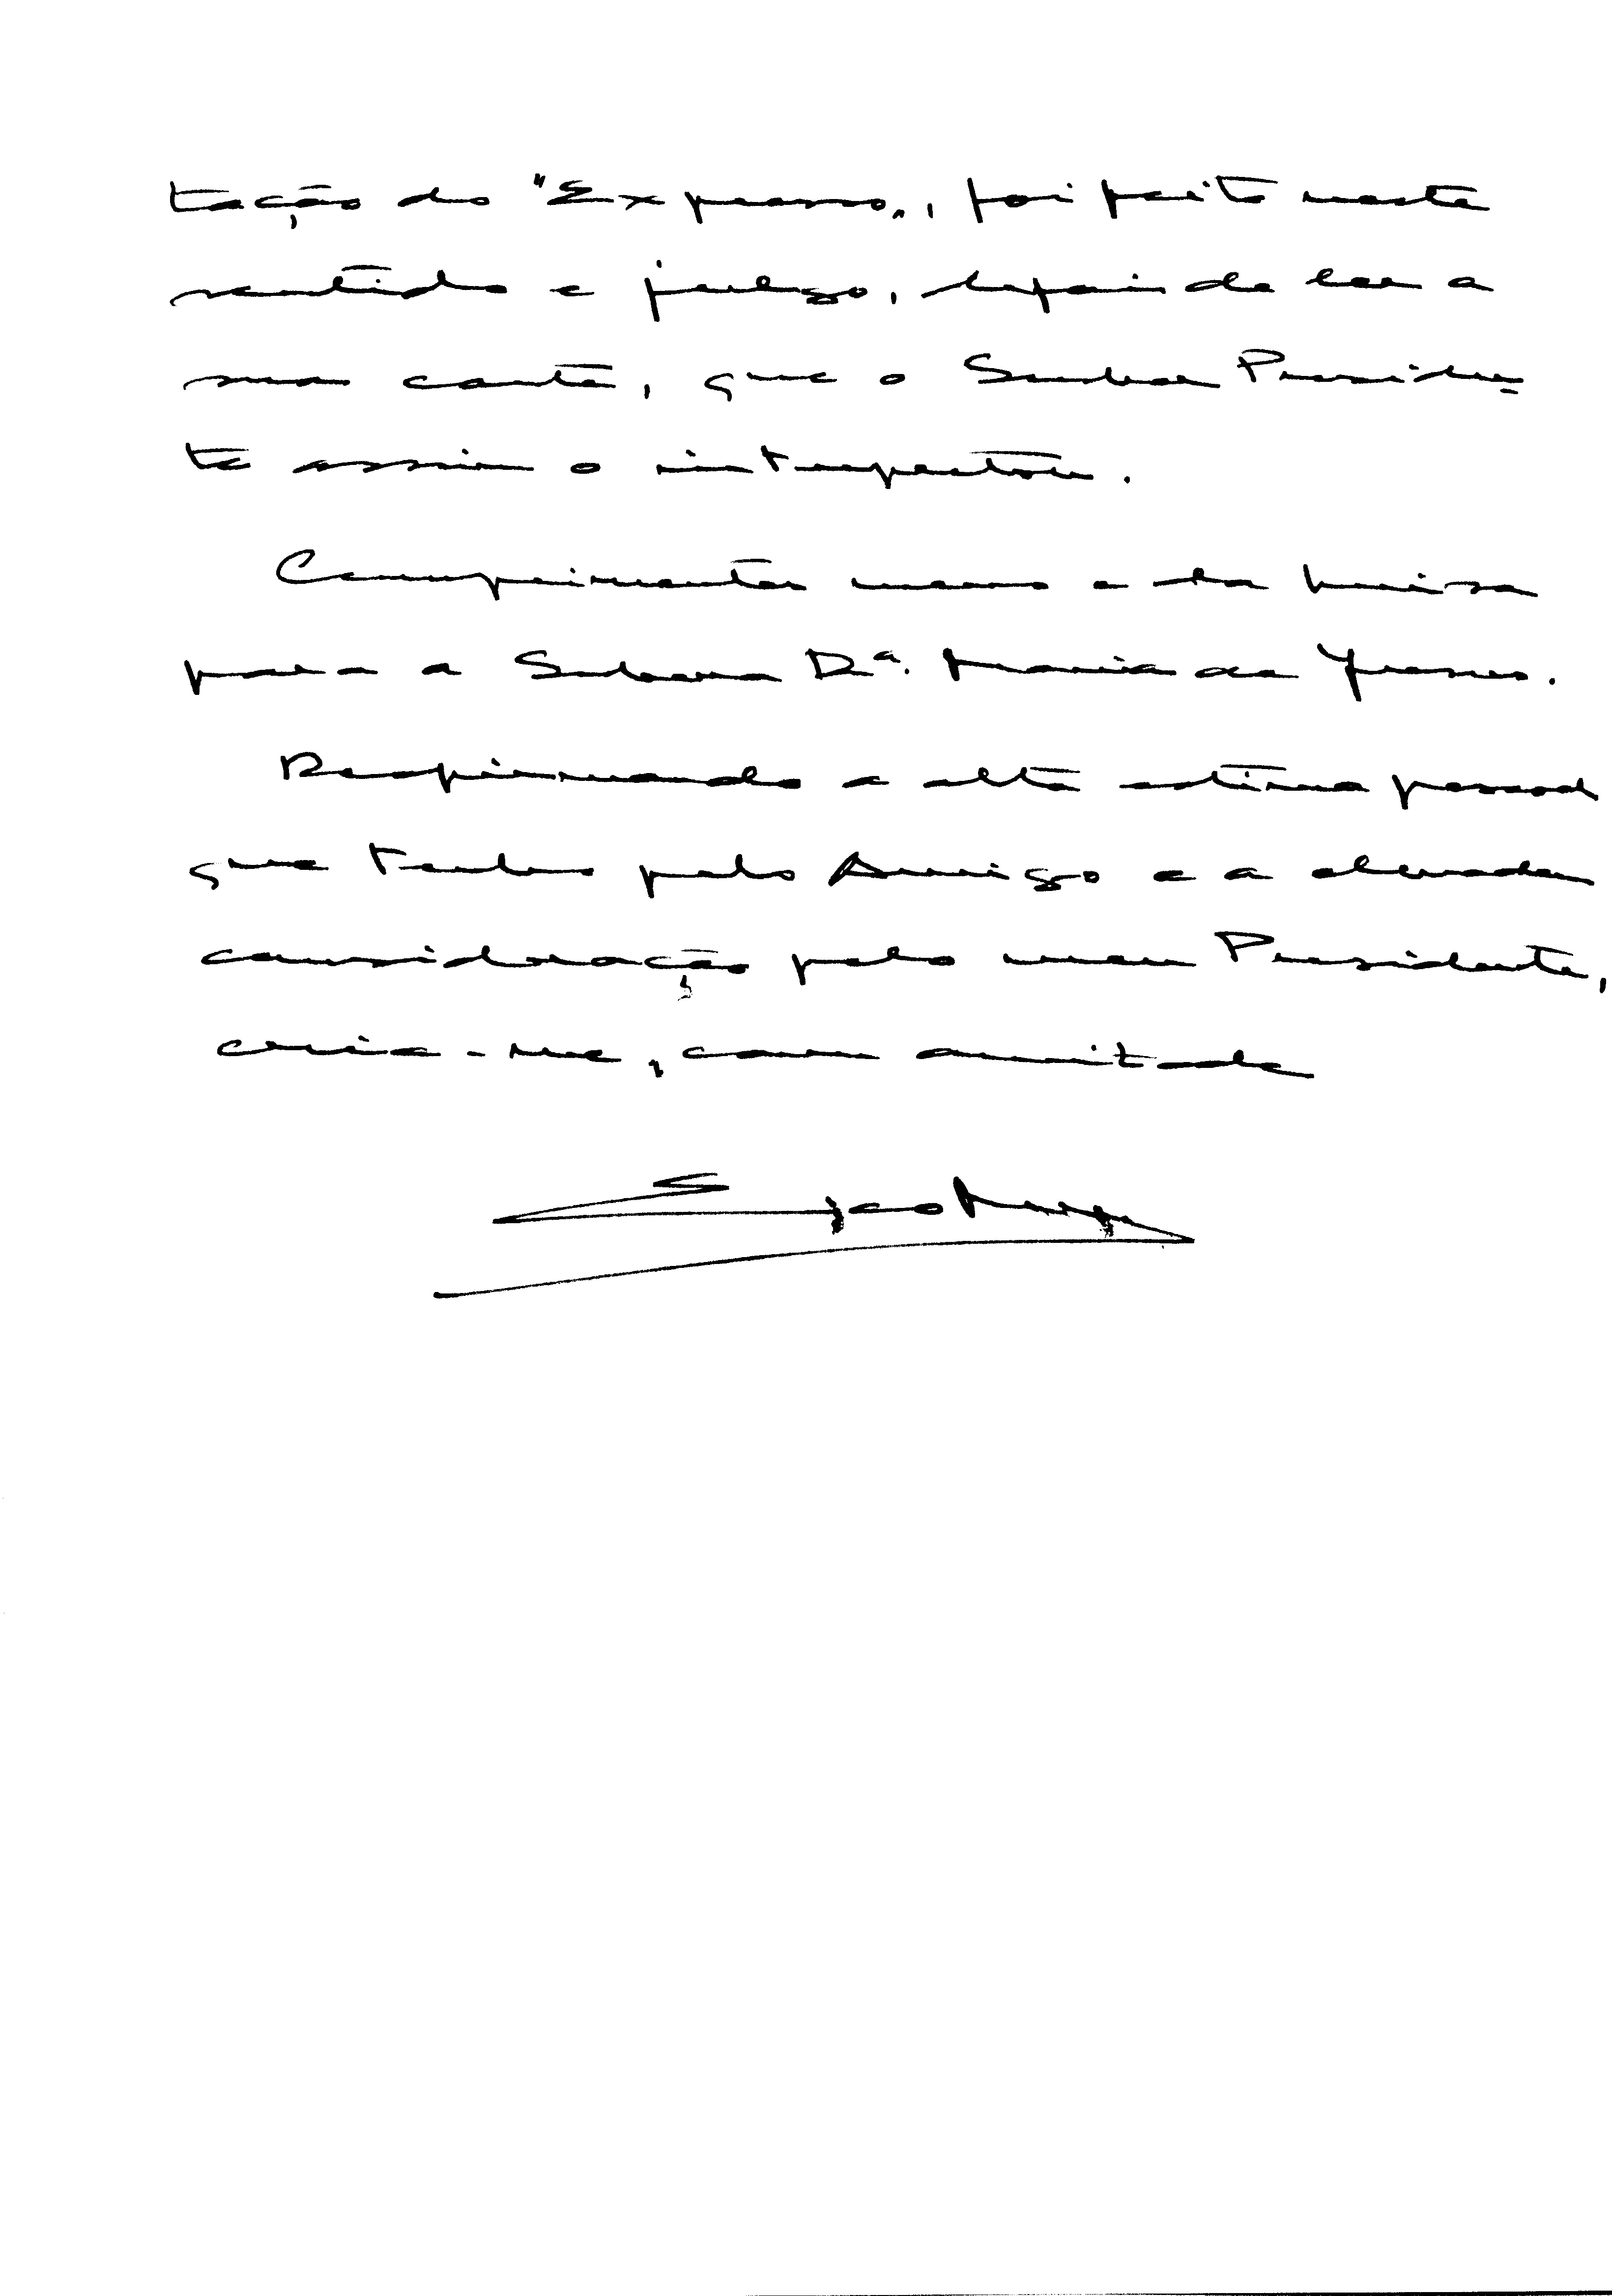 tação do "Expresso„, foi feito neste
sentido e julgo, depois de ler a
sua carta, que o Senhor Presiden=
te assim o interpretou.
Cumprimentos meus e da Luisa
para a Senhora Dª. Maria de Jesus.
Reafirmando a alta estima pessoal
que tenho pelo Amigo e a elevada
consideração pelo meu Presidente,
creia-me, com amizade